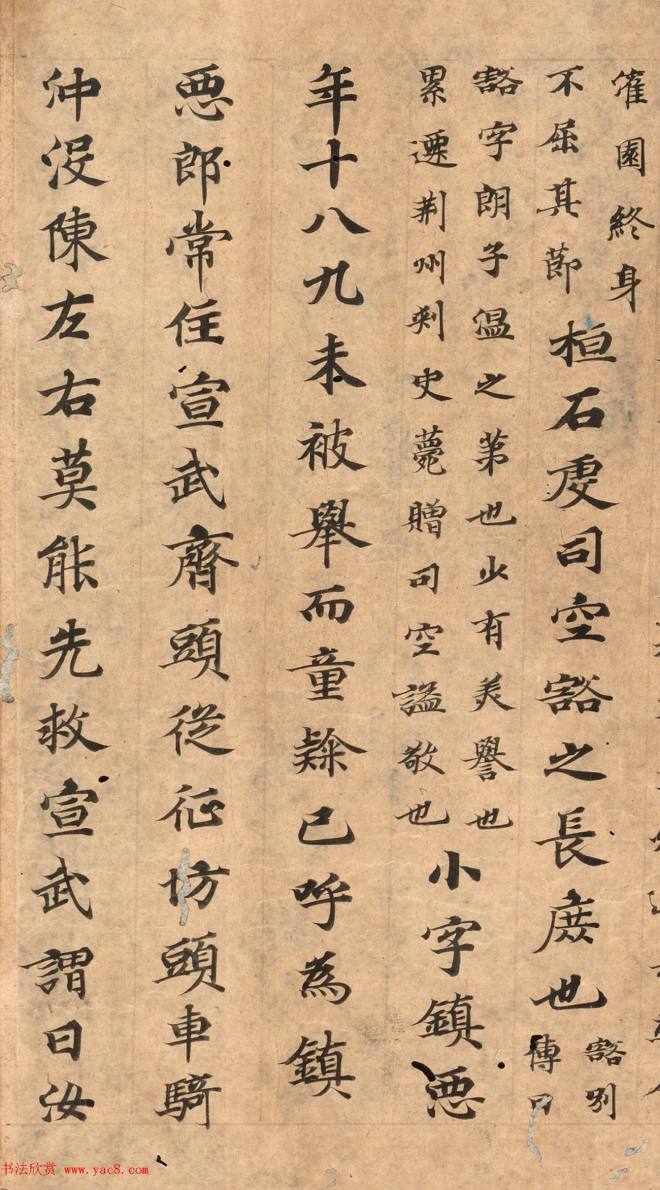 灌園終身
不屈其節
桓石虔司空豁之長庶也
豁別
傳曰
豁字朗子溫之第也少有美譽也
累遷荊州刾史薨贈司空謚敬也
小字鎮惡
年十八九未被舉而童隸已呼為鎮
惡郎常住宣武齊頭從征坊頭車騎
沖沒陳左右莫能先救宣武謂曰汝
书法欣赏 www.yac8.com